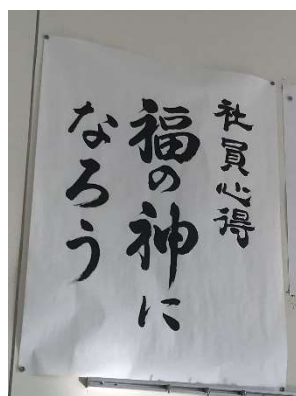 社員心得
福の神に
なろう